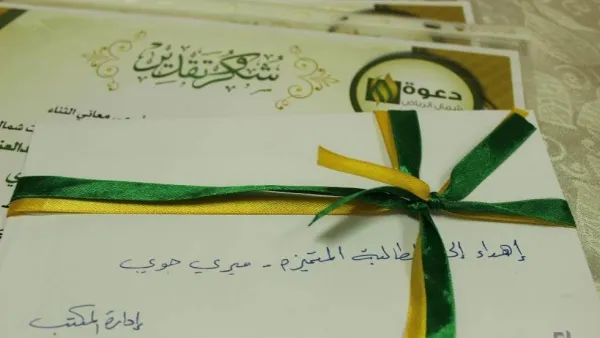 شكر وتقدير
دعوة
شمال الرياض
معاني الثناء
شمال
إهداء إلى الطالبة المتميزه - ميري جوي
إدارة المكتب